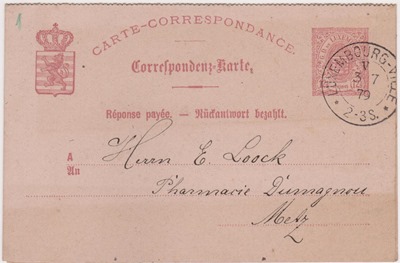 1
CARTE-CORRESPONDANCE.
Correspondenz-Karte.
LUXEMBOURG-VILLE
3 7
79
2-3S.
Réponse payée. — Rückantwort bezahlt.
A
An
Herrn E. Loock
Pharmacie Dumagnou
Metz